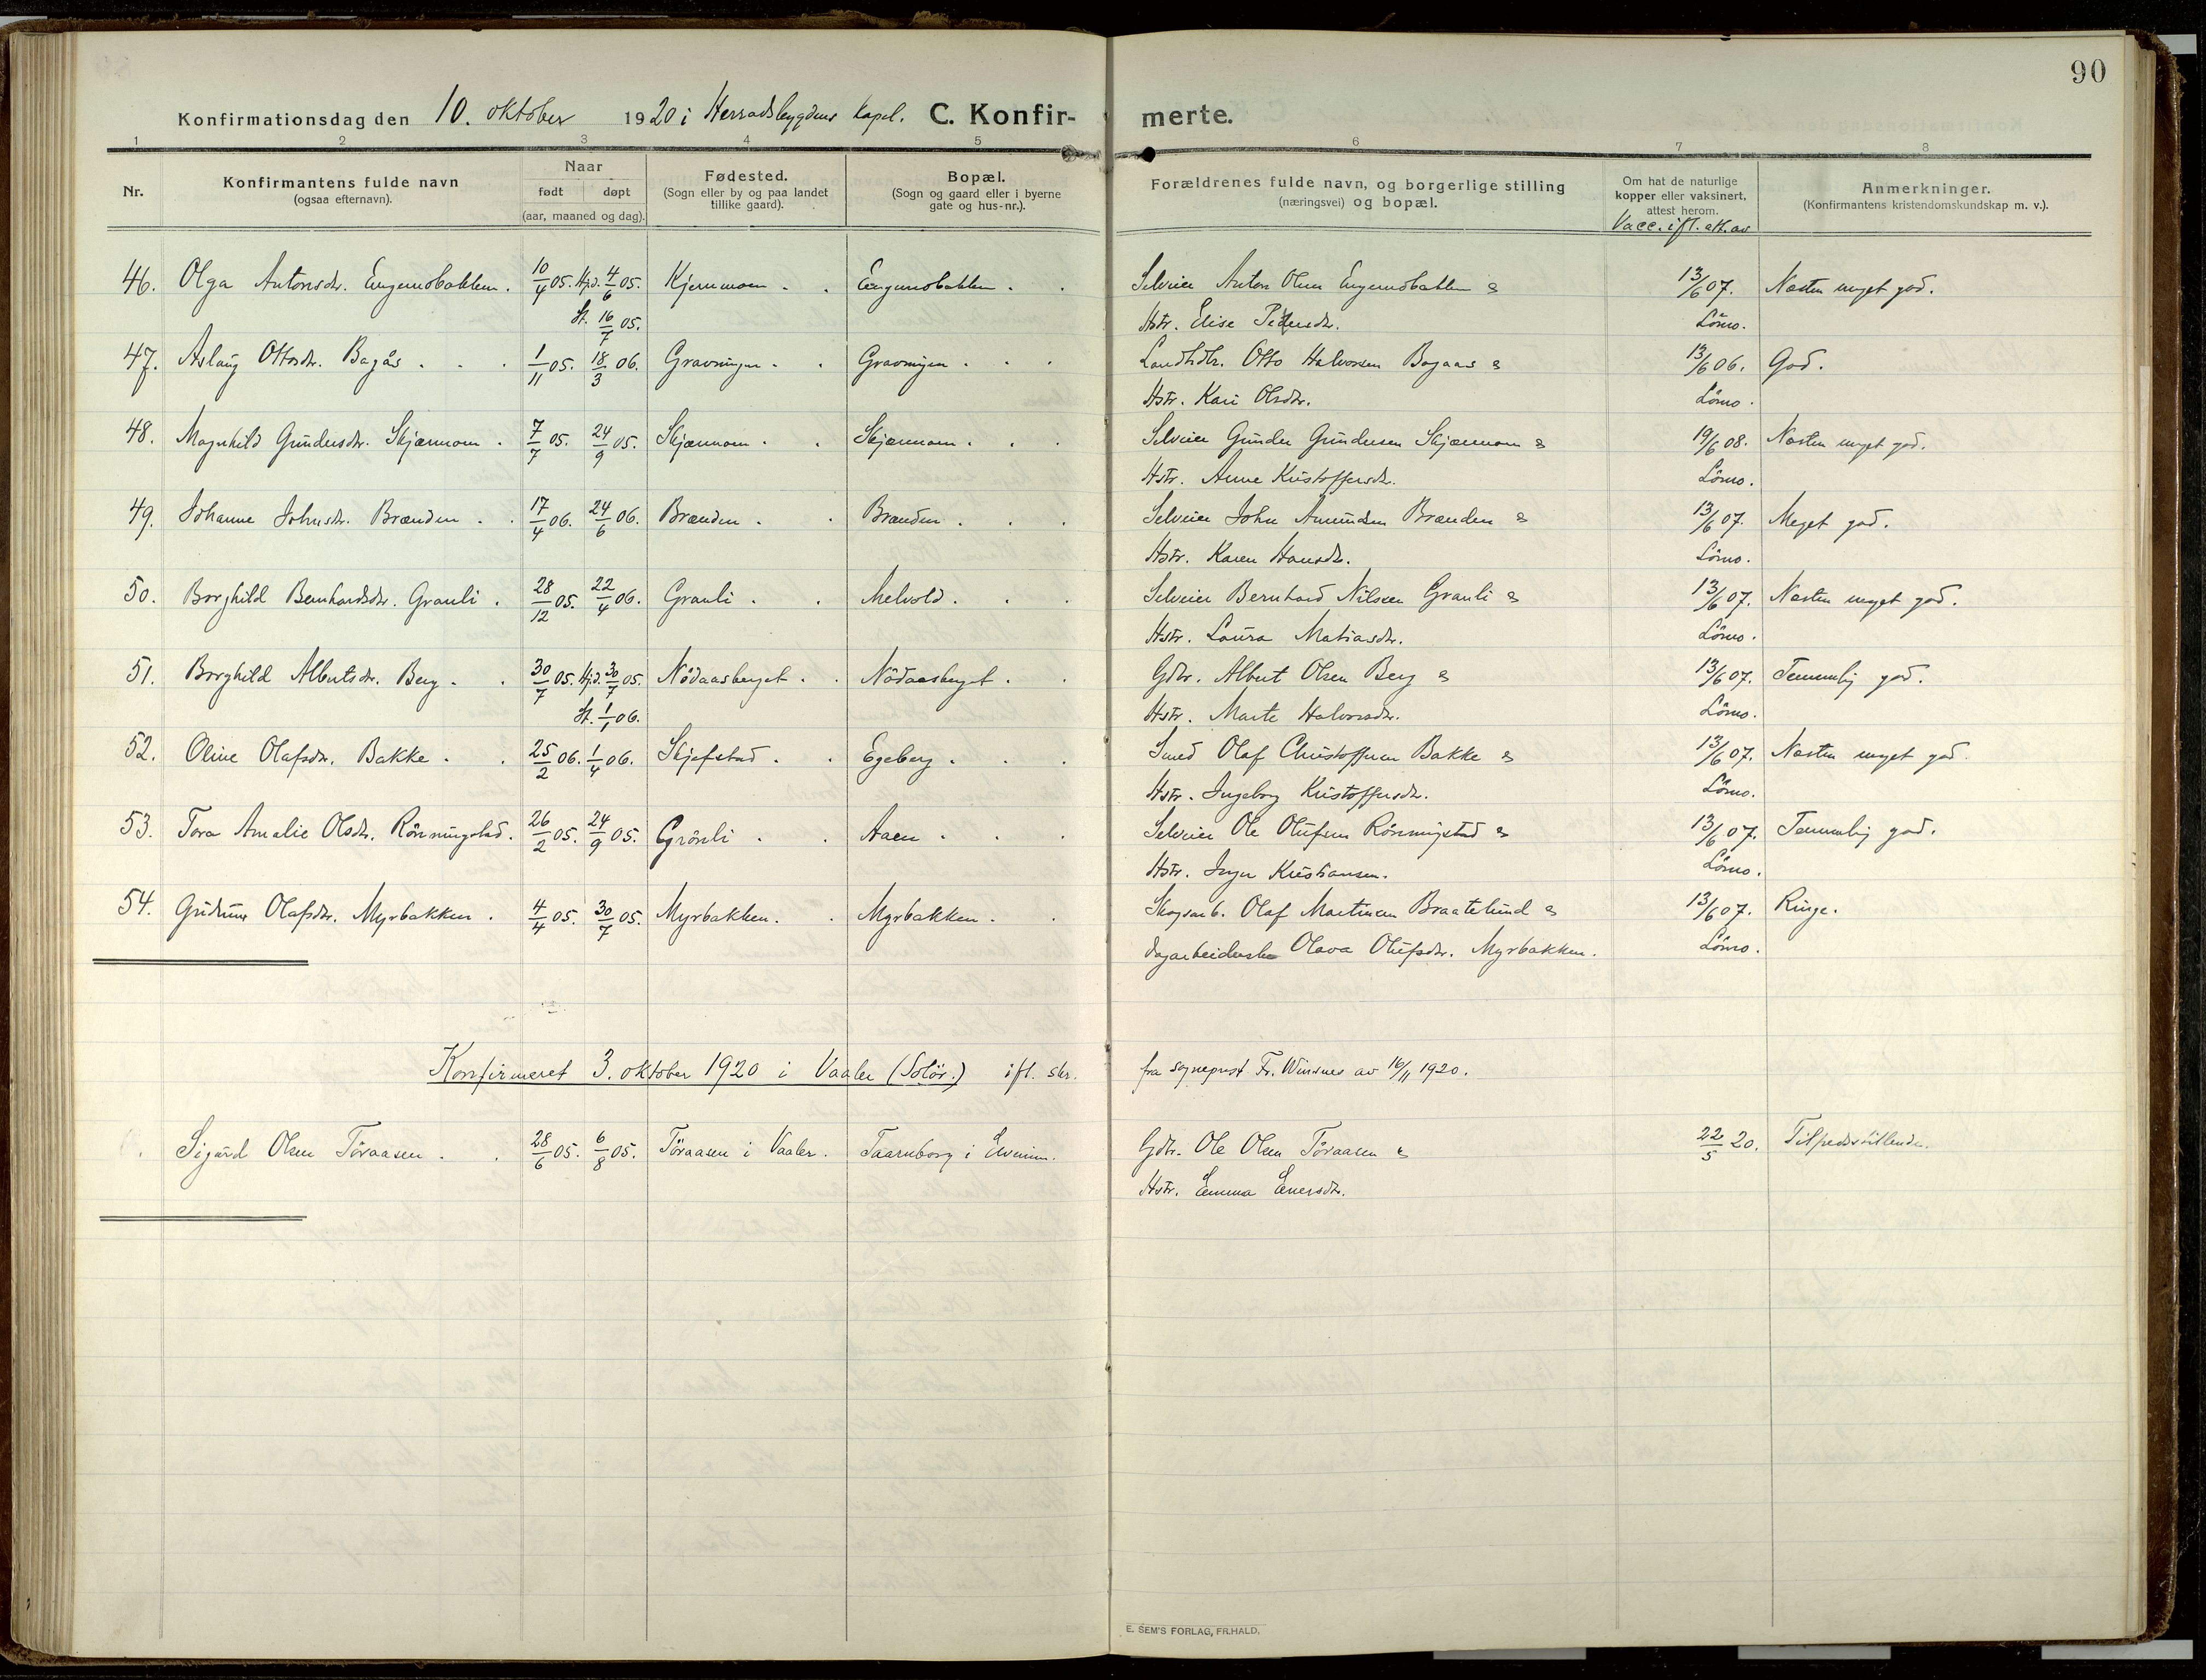 90
Konfirmationsdag den 10. oktober 1920 i Herradsbygdens kapel. C. Konfir- merte.
1 2 3 4 5 6 7 8
Nr.
Konfirmantens fulde navn
(ogsaa efternavn).
Naar
født døpt
(aar, maaned og dag).
Fødested.
(Sogn eller by og paa landet
tillike gaard).
Bopæl.
(Sogn og gaard eller i byerne
gate og hus-nr.).
Forældrenes fulde navn, og borgerlige stilling
(næringsvei) og bopæl.
Om hat de naturlige
kopper eller vaksinert,
attest herom.
Vacc. ifl. att. av
Anmerkninger.
(Konfirmantens kristendomskundskap m. v.).
46. Olga Antonsdr. Engemobakken. 10/4 05. Hjd. 4/6 05. Kjernmoen . . Engemobakken . . Selveier Anton Olsen Engemobakken & 13/6 07. Næsten meget god.
St. 16/7 05. Hstr. Elise Pedersdr. Lömo.
47. Aslaug Ottosdr. Bagås . . . 1/11 05. 18/3 06. Gravningen . . Gravningen . . . Landhdlr. Otto Halvorsen Bagaas & 13/6 06. God.
Hstr. Kari Olsdr. Lömo.
48. Magnhild Gundersdr. Skjærmoen . 7/7 05. 24/9 05. Skjærmoen . . Skjærmoen . . . Selveier Gunder Gundersen Skjærmoen & 19/6 08. Næsten meget god.
Hstr. Anne Kristoffersdr. Lömo.
49. Johanne Johnsdr. Brænden . . 17/4 06. 24/6 06. Brænden . . Brænden . . . Selveier John Amundsen Brænden & 13/6 07. Meget god.
Hstr. Karen Hansdr. Lömo.
50. Borghild Bernhardsdr. Granli . 28/12 05. 22/4 06. Granli . . Melvold . . . Selveier Bernhard Nilsen Granli & 13/6 07. Næsten meget god.
Hstr. Laura Matiasdr. Lömo.
51. Borghild Albertsdr. Berg . . 30/7 05. Hjd. 30/7 05. Nödaasberget . . Nödaasberget . . Gdbr. Albert Olsen Berg & 13/6 07. Temmelig god.
St. 1/1 06. Hstr. Marte Halvorsdr. Lömo.
52. Oline Olafsdr. Bakke . . 25/2 06. 1/4 06. Skjefstad . . Egeberg . . . Smed Olaf Christoffersen Bakke & 13/6 07. Næsten meget god.
Hstr. Ingeborg Kristoffersdr. Lömo.
53. Tora Amalie Olsdr. Rönningstad. 26/2 05. 24/9 05. Grönli . . Aaen . . . Selveier Ole Olufsen Rönningstad & 13/6 07. Temmelig god.
Hstr. Inger Kristiansen. Lömo.
54. Gudrun Olafsdr. Myrbakken . 4/4 05. 30/7 05. Myrbakken. . Myrbakken. . Skogsarb. Olaf Martinsen Braatelund & 13/6 07. Ringe.
dagarbeiderske Olava Olufsdr. Myrbakken. Lömo.
Konfirmeret 3. oktober 1920 i Vaaler (Solör.) ifl. skr. fra sogneprest Fr. Winsnes av 16/11 1920.
Sigurd Olsen Töraasen . . 28/6 05. 6/8 05. Töraasen i Vaaler. Taarnborg i Elverum. Gdbr. Ole Olsen Töraasen & 22/5 20. Tilfredsstillende.
Hstr. Emma Enersdr.
E. SEM'S FORLAG, FR.HALD.